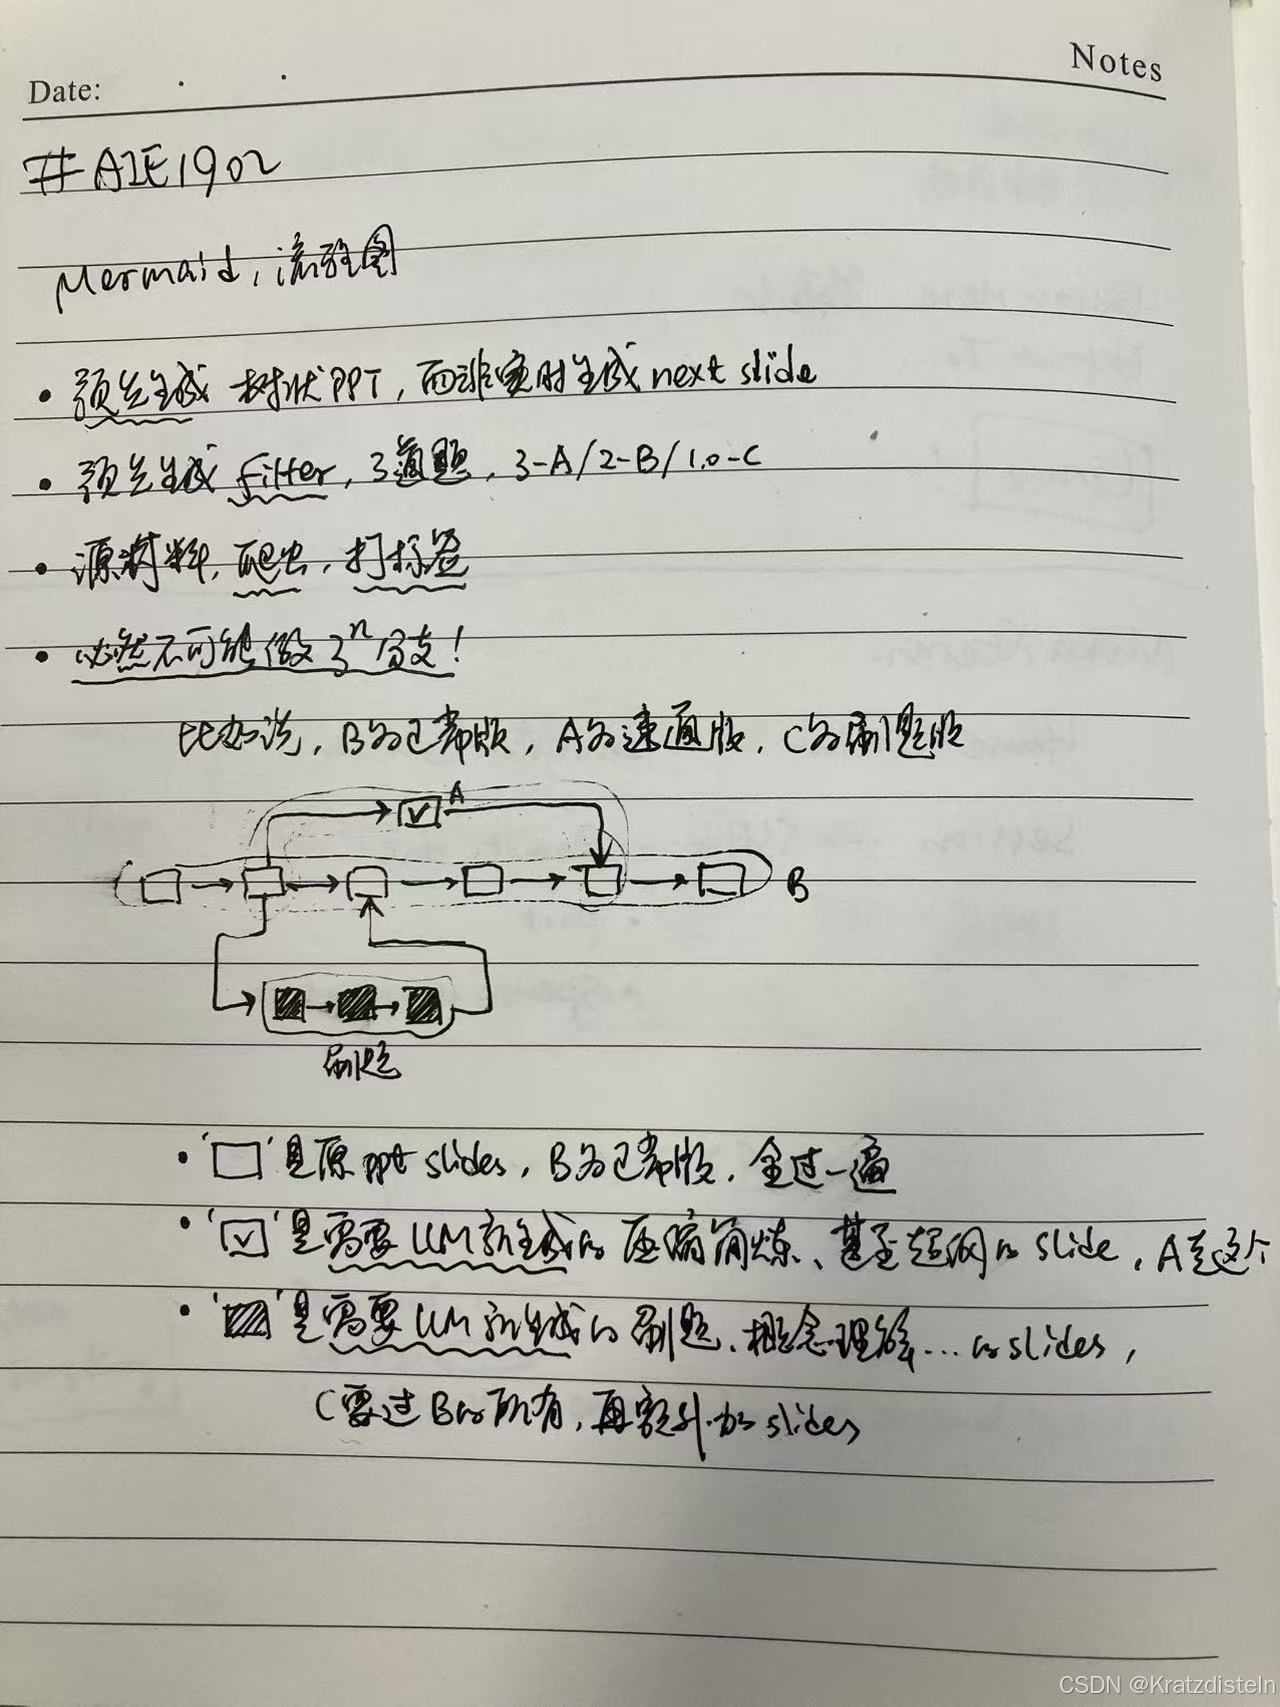 Notes
Date:
#AIE1902
Mermaid, 流程图
• 预先生成 树状PPT, 而非实时生成 next slide
• 预先生成 filter, 3道题, 3-A/2-B/1,0-C
• 源材料, 爬虫, 打标签
• 必然不可能做 3ⁿ 分支!
比如说, B为正常版, A为速通版, C为刷题版
A
B
刷题
• '□' 是原 ppt slides, B为正常版, 全过一遍
• '☑' 是需要 LLM 新生成的 压缩简炼、甚至超纲的 slide, A走这个
• '▨' 是需要 LLM 新生成的 刷题、概念理解...的 slides,
C要过B的所有, 再额外加 slides
CSDN @Kratzdisteln